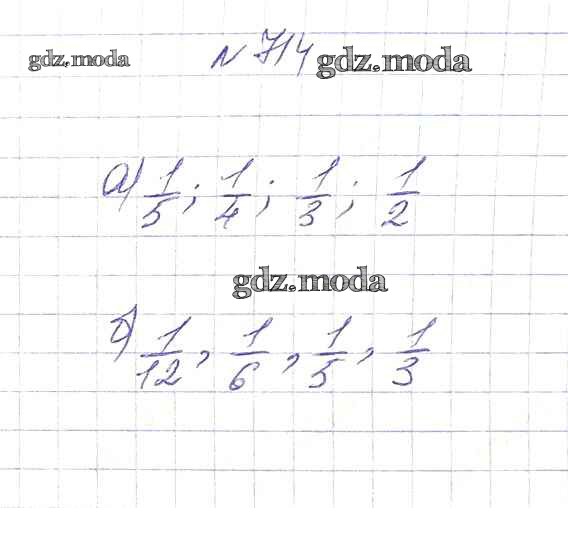 gdz.moda № 714 gdz.moda
а) 1/5; 1/4; 1/3; 1/2
gdz.moda
б) 1/12, 1/6, 1/5, 1/3